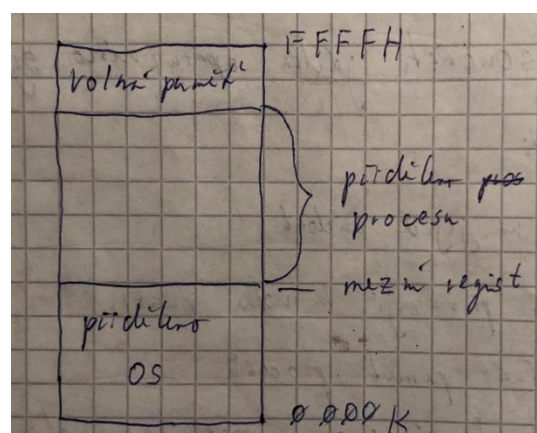 FFFFH
volná paměť
přiděleno pros
procesu
mezní regist
přiděleno
OS
0000K